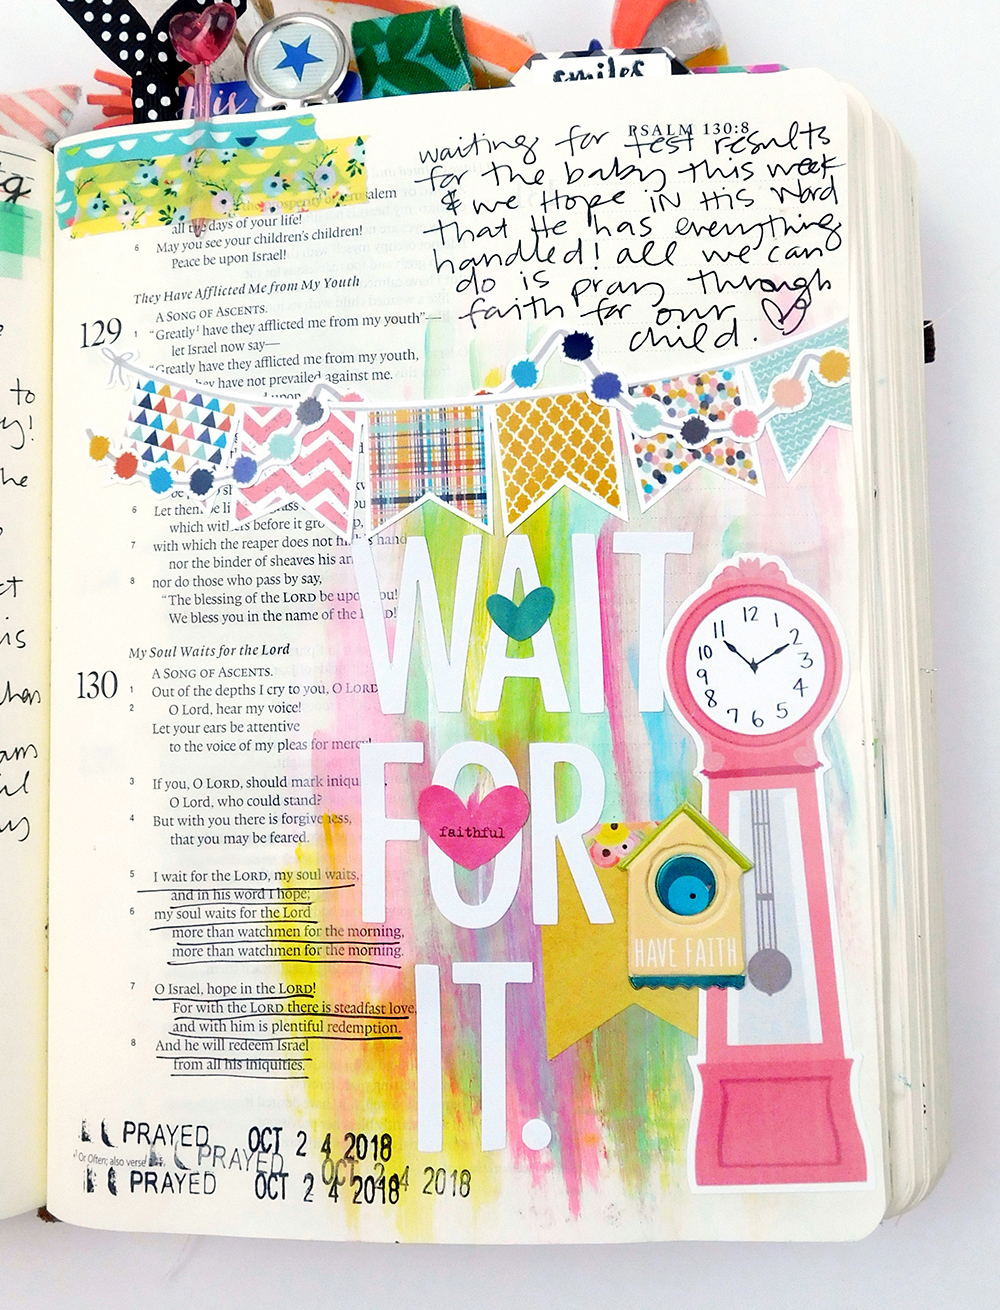 smiles
is
PSALM 130:8
waiting for test results
for the baby this week
& we Hope in His Word
that He has everything
handled! all we can
do is pray through
faith for our
child.
prosperity of Jerusalem
all the days of your life!
6 May you see your children's children!
Peace be upon Israel!
They Have Afflicted Me from My Youth
129
A SONG OF ASCENTS.
1 "Greatly have they afflicted me from my youth"—
let Israel now say—
"Greatly have they afflicted me from my youth,
they have not prevailed against me.
upon
6 Let them be like
which withers before it
7 with which the reaper does not fill his hand
nor the binder of sheaves his
8 nor do those who pass by say,
"The blessing of the LORD be upon you!
We bless you in the name of the LORD!
My Soul Waits for the Lord
130
A SONG OF ASCENTS.
1 Out of the depths I cry to you, O LORD
2 O Lord, hear my voice!
Let your ears be attentive
to the voice of my pleas for mercy!
3 If you, O LORD, should mark
O Lord, who could stand?
4 But with you there is forgiveness,
that you may be feared.
5 I wait for the LORD, my soul waits,
and in his word I hope;
6 my soul waits for the Lord
more than watchmen for the morning,
more than watchmen for the morning.
7 O Israel, hope in the LORD!
For with the LORD there is steadfast love,
and with him is plentiful redemption.
8 And he will redeem Israel
from all his iniquities.
WAIT
FOR
faithful
IT.
12 1 2 3 4 5 6 7 8 9 10 11
HAVE FAITH
PRAYED OCT 2 4 2018
Or Often; also verse
PRAYED OCT 2 4 2018
PRAYED OCT 2 4 2018
to
he
is